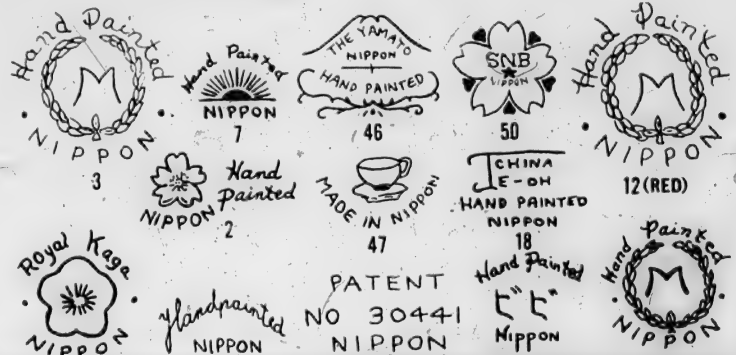 Hand Painted
M
NIPPON
3
Hand Painted
NIPPON
7
THE YAMATO
NIPPON
HAND PAINTED
46
SNB
NIPPON
50
Hand Painted
M
NIPPON
12(RED)
Hand
Painted
NIPPON
2
MADE IN NIPPON
47
T CHINA
E-OH
HAND PAINTED
NIPPON
18
Royal Kaga
NIPPON
Handpainted
NIPPON
PATENT
NO 30441
NIPPON
Hand Painted
ビビ
Nippon
Hand Painted
M
NIPPON